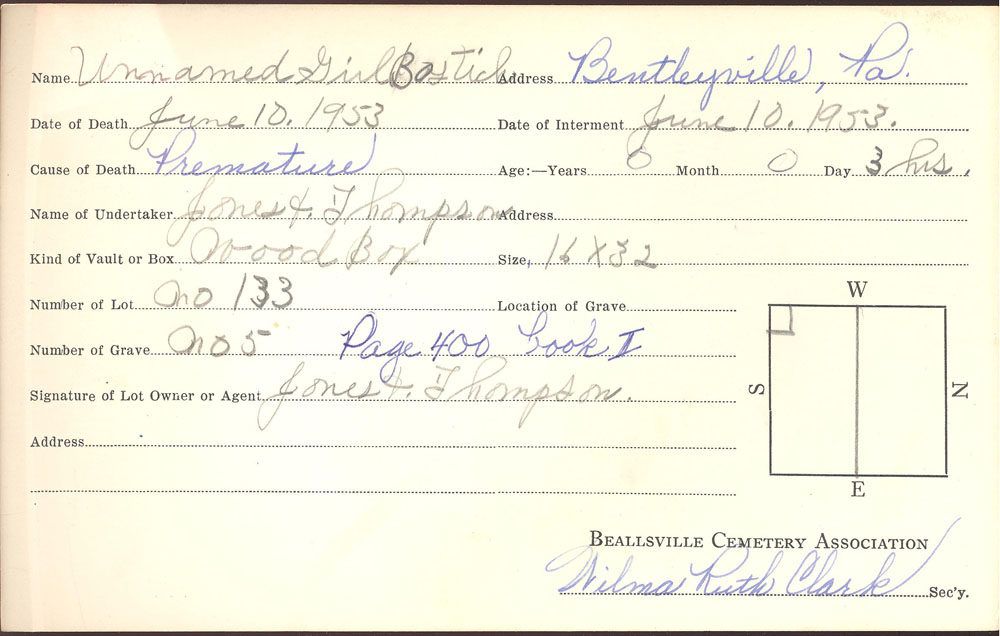 Name Unnamed Girl Bostich Address Bentleyville, Pa.
Date of Death June 10. 1953 Date of Interment June 10. 1953.
Cause of Death Premature Age:—Years 0 Month 0 Day 3 hrs.
Name of Undertaker Jones & Thompson Address
Kind of Vault or Box Wood Box Size, 16 X 32
Number of Lot no 133 Location of Grave
W
Number of Grave no 5 Page 400 book II
Signature of Lot Owner or Agent Jones & Thompson.
S N
Address
E
BEALLSVILLE CEMETERY ASSOCIATION
Wilma Ruth Clark Sec'y.